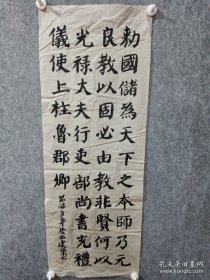 勅國儲為天下之本師乃元
良教以固必由教非賢何以
光禄大夫行吏部尚書充禮
儀使上柱魯郡卿